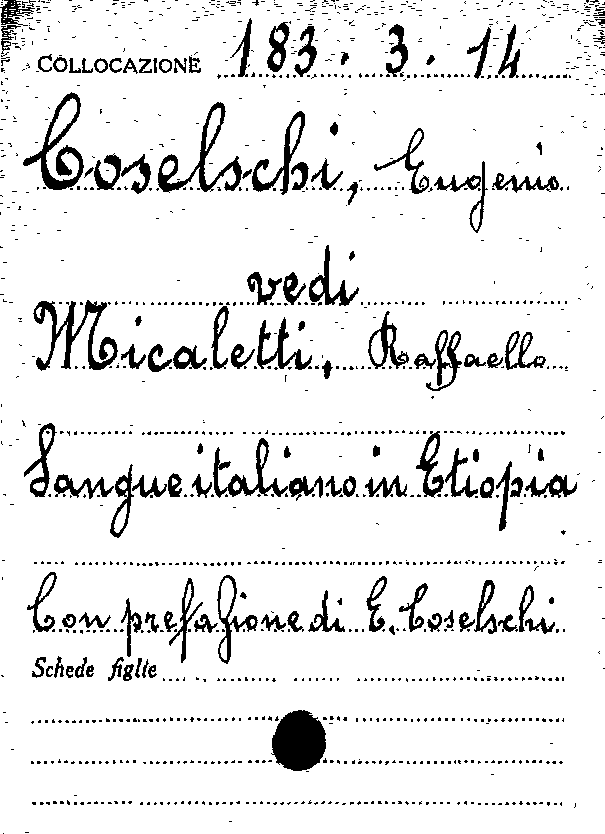 COLLOCAZIONE 183. 3. 14
Coselschi, Eugenio
vedi
Micaletti, Raffaello
Sangue italiano in Etiopia
Con prefazione di E. Coselschi
Schede figlie